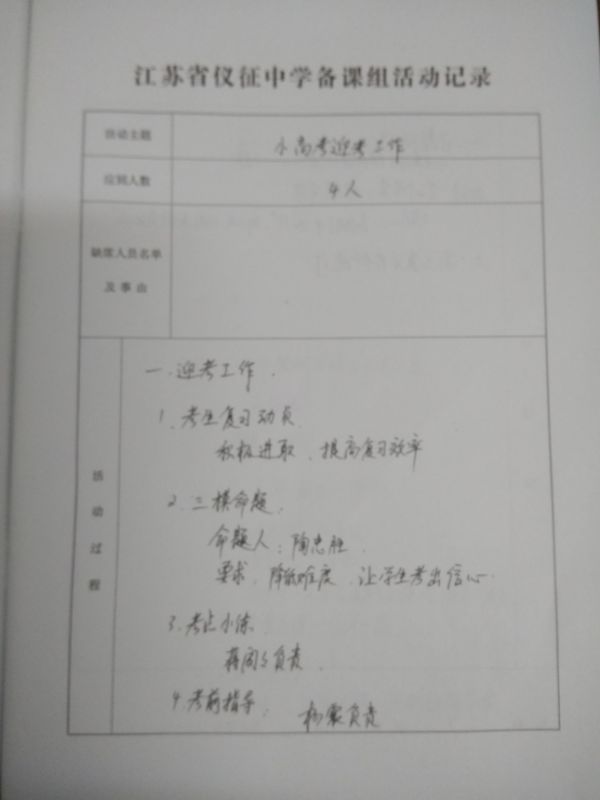 江苏省仪征中学备课组活动记录
活动主题 小高考迎考工作
应到人数 4人
缺席人员名单
及事由
活动过程
一.迎考工作.
1.考生复习动员
积极进取、提高复习效率
2.三模命题.
命题人:陶忠胜.
要求.降低难度.让学生考出信心.
3.考点小练
负责.
4.考前指导: 杨震负责